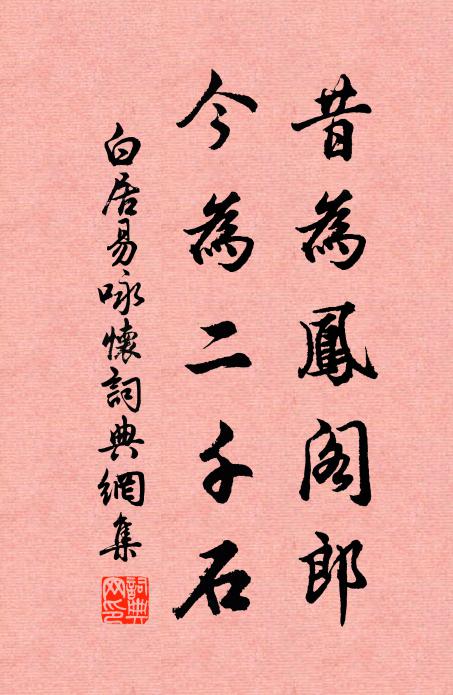 昔為鳳阁郎
今為二千石
白居易咏懷詞典網集
詞典網印